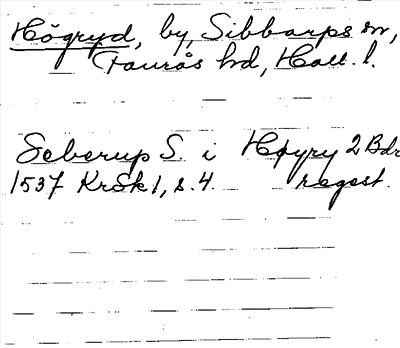 Högryd, by, Sibbarps sn,
Faurås hd, Hall. l.
Seberup S. i Høyry 2 Bdr
1537 KrSk 1, s. 4. regest.